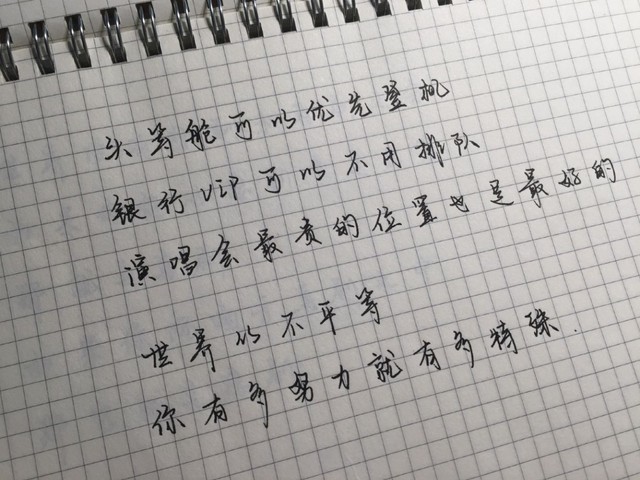 头等舱可以优先登机
银行VIP可以不用排队
演唱会最贵的位置也是最好的
世界从不平等
你有多努力就有多特殊.